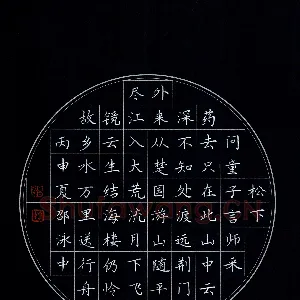 松下
问童子言师采
药去只在此山中云
深不知处渡远荆门
外来从楚国游山随平
尽江入大荒流月下飞
镜云生结海楼仍怜
故乡水万里送行舟
丙申夏邵泳中